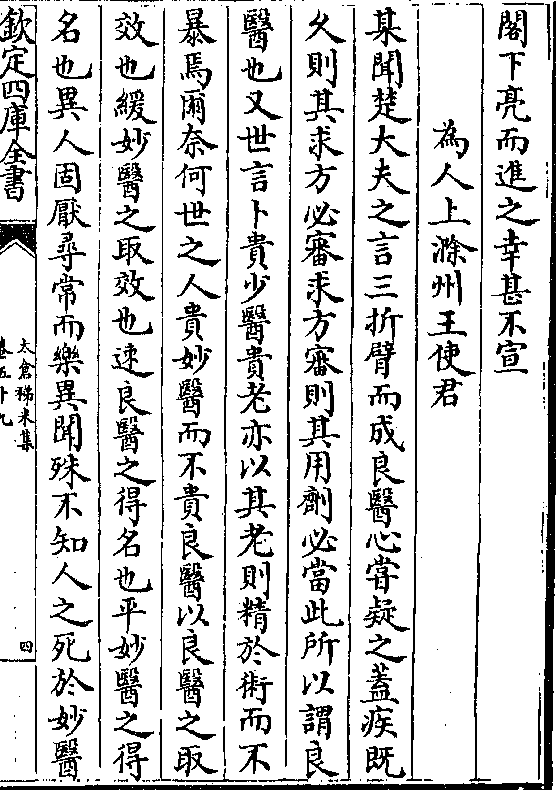 閣下亮而進之幸甚不宣
為人上滁州王使君
某聞楚大夫之言三折臂而成良醫心嘗疑之蓋疾既
久則其求方必審求方審則其用劑必當此所以謂良
醫也又世言卜貴少醫貴老亦以其老則精於術而不
暴焉爾奈何世之人貴妙醫而不貴良醫以良醫之取
效也緩妙醫之取效也速良醫之得名也平妙醫之得
名也異人固厭尋常而樂異聞殊不知人之死於妙醫
欽定四庫全書
太倉稊米集
卷五十九
四